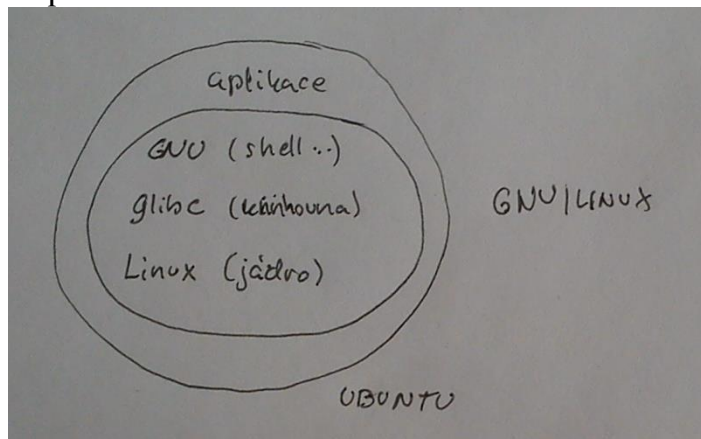 aplikace
GNU (shell...)
glibc (knihovna)
Linux (jádro)
GNU/LINUX
UBUNTU